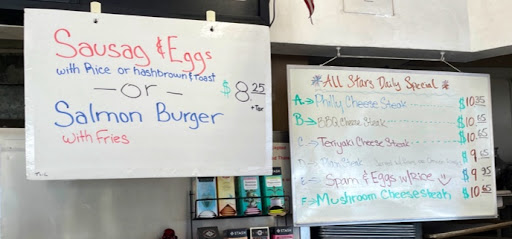 Sausag & Eggs
with Rice or hashbrown & toast
— or —
$8.25
+Tax
Salmon Burger
with Fries
*All Stars Daily Special*
A→ Philly Cheese Steak $10.35
B→ BBQ Cheese Steak $10.
C→ Teriyaki Cheese Steak $10.65
Steak $9.
Spam & Eggs w/Rice $9.
F→ Mushroom Cheesesteak $10.65